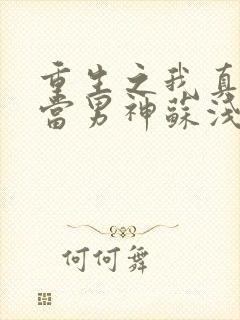 重生之我真
當男神蘇淺
何何舞